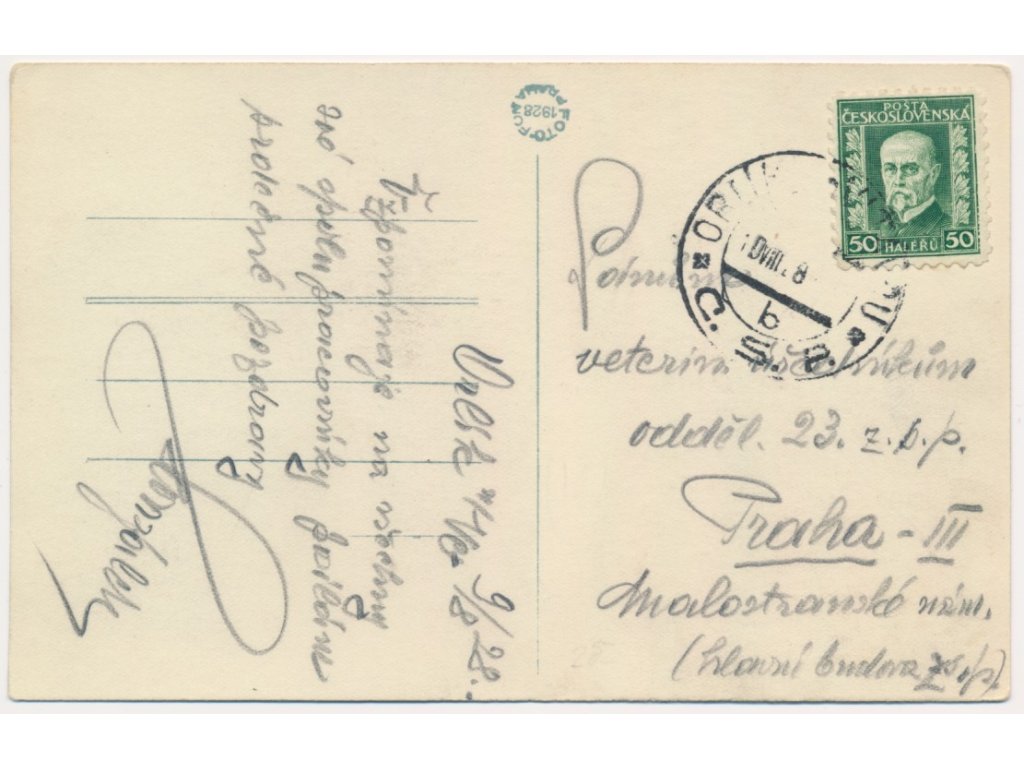 FOTO-FON
PRAHA
1928
POŠTA
ČESKOSLOVENSKÁ
50 HALÉŘŮ 50
ORLÍK
Č.S.R.
b
Vzpomínaje na všechny
své spolupracovníky posílám
srdečné pozdravy
9/8 28.
Pánům
veterin. úředníkům
odděl. 23. z.s.p.
Praha - III
Malostranské nám.
(hlavní budova zsp)